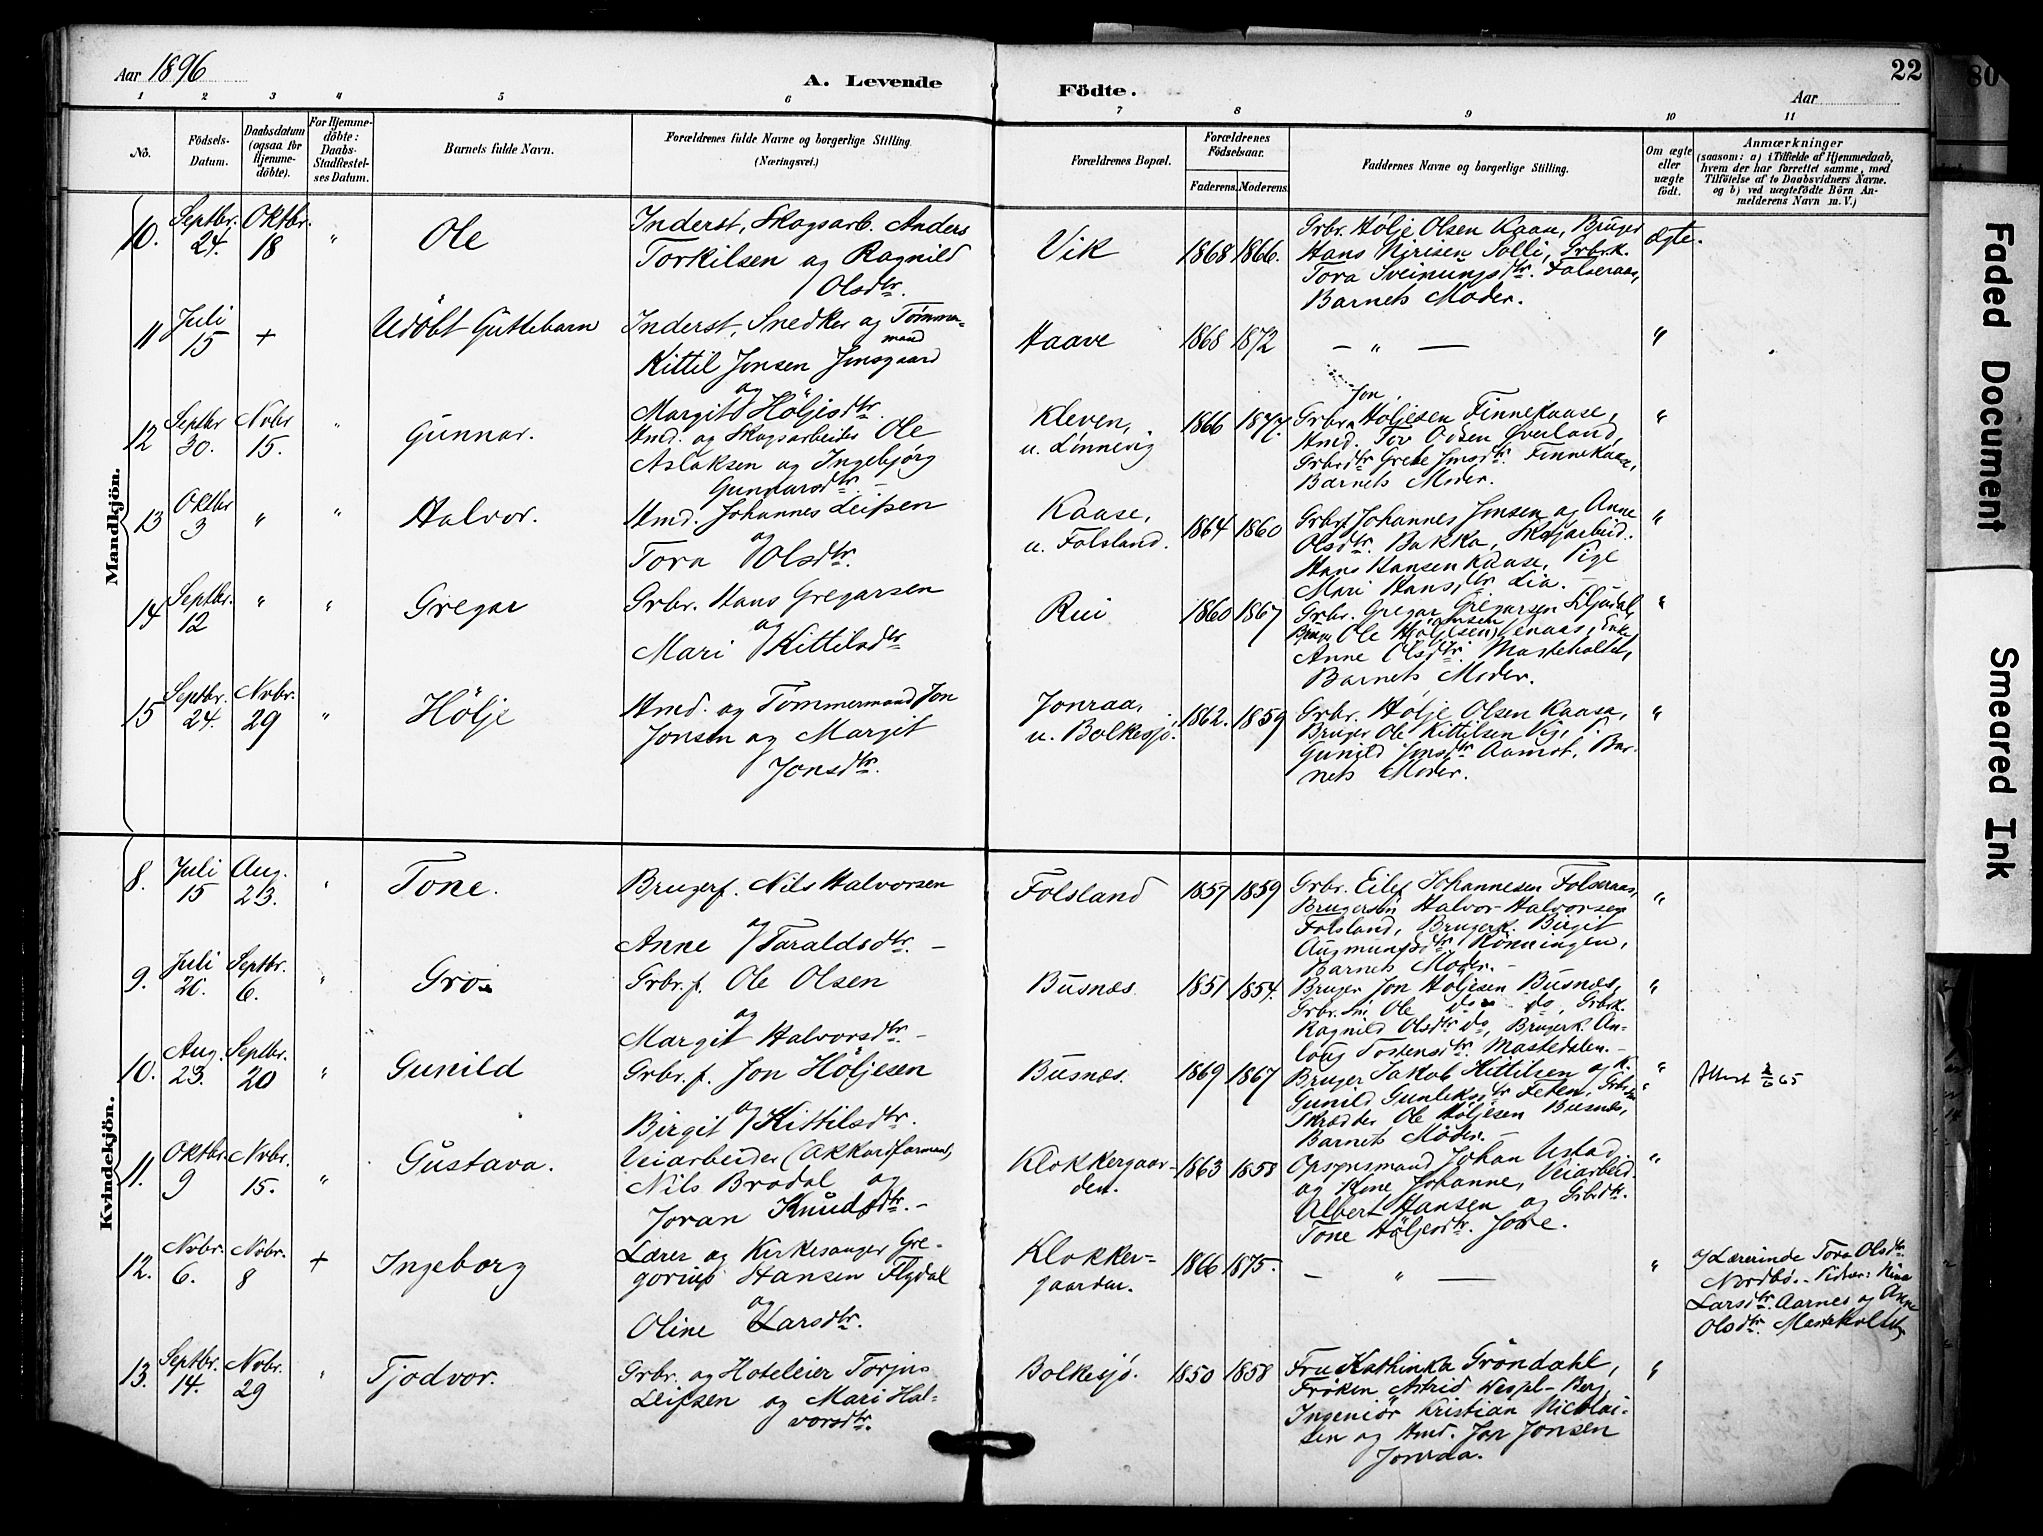 Aar 1896
A. Levende
Födte.
22
80
Aar
1 2 3 4 5 6 7 8 9 10 11
No.
Födsels-
Datum.
Daabsdatum
(ogsaa for
Hjemme-
döbte).
For Hjemme-
döbte:
Daabs-
Stadfæstel-
ses Datum.
Barnets fulde Navn.
Forældrenes fulde Navne og borgerlige Stilling.
(Næringsvei.)
Forældrenes Bopæl.
Forældrenes
Födselsaar.
Faderens. Moderens.
Faddernes Navne og borgerlige Stilling.
Om ægte
eller
uægte
födt.
Anmærkninger
(saasom: a) i Tilfælde af Hjemmedaab,
hvem der har forrettet samme, med
Tilföielse af to Daabsvidners Navne.
og b) ved uægtefödte Börn An-
melderens Navn m. V.)
Mandkjön.
10. Septbr. 24. Oktbr. 18 " Ole
Inderst, Skogsarb. Anders
Torkilsen og Ragnild
Olsdtr.
Vik 1868 1866.
Grbr. Hølje Olsen Kaase, Bruger
Hans Nirisen Solli, Grbr.k.
Tora Sveinungsdtr. Folseraas,
Barnets Moder.
ægte.
11 Juli 15 + Udöbt Guttebarn
Inderst, Snedker og Tömmer-
mand
Kittil Jonsen Jonsgaard
og
Margit Höljesdtr.
Haave 1868 1872 — " — "
12 Septbr 30. Novbr 15. " Gunnar.
Hmd. og Skogsarbeider Ole
Aslaksen og Ingebjörg
Gunnarsdtr. —
Kleven,
u. Lönnevig
1866 1877.
Jon
Grbr. Höljesen Finnekaase,
Hmd. Tov Olsen Överland,
Grbrdtr Grete Jonsdtr. Finnekaase,
Barnets Moder.
"
13 Oktbr 3 " " Halvor.
Hmd. Johannes Leifsen
og
Tora Olsdtr.
Kaase,
u. Folsland.
1864 1860
Grbrf Johannes Jonsen og Anne
Olsdtr. Bakka, Skogarbeid.
Hans Hansen Kaase, Pige
Mari Hansdtr Lia. —
"
14 Septbr. 12 " " Gregar
Grbr. Hans Gregarsen
og
Mari Kittilsdtr
Rui 1860 1867
Grbr. Gregar Gregarsen
Bruger Ole Höljesen
Anne Olsdtr. Masteholtet,
Barnets Moder.
"
15 Septbr. 24. Novbr. 29 " Hölje
Hmd. og Tömmermand Jon
Jonsen og Margit
Jonsdtr.
Jonraa,
u. Bolkesjö.
1862. 1859
Grbr. Hölje Olsen Kaase,
Bruger Ole Kittilsen Vig, P.
Gunild Jonsdtr Aamot, Bar-
nets Moder.
"
Kvindekjön.
8. Juli 15 Aug. 23. " Tone.
Brugerf. Nils Halvorsen
og
Anne Taraldsdtr. —
Folsland 1857 1859
Grbr. Eilef Johannesen Folseraas,
Brugersön Halvor Halvorsen
Folsland, Brugerk. Birgit
Augmundsdtr Rönningen,
Barnets Moder. —
"
9. Juli 26. Septbr. 6. " Gro
Grbr.f. Ole Olsen
og
Margit Halvorsdtr. —
Busnæs 1851 1854.
Bruger Jon Höljesen Busnæs,
Grbr. sön Ole do do, Grbrk.
Ragnild Olsdtr do, Brugerk. An-
laug Tostensdtr. Mastedalen. —
"
10. Aug. 23. Septbr. 20 " Gunild
Grbr.f. Jon Höljesen
og
Birgit Kittilsdtr.
Busnæs. 1869 1867
Bruger Jakob Kittilsen og K.
Gunild Gunleiksdtr Feten, Grbrsön
Skrædder Ole Höljesen Busnæs,
Barnets Moder. —
"
Attest 2/6 65
11. Oktbr. 9 Novbr. 15. " Gustava.
Veiarbeider (Akkordformand)
Nils Brodal og
Joran Knudsdtr. —
Klokkergaar-
den.
1863 1858
Opsynsmand Johan Ustad,
og Kone Johanne, Veiarbeid.
Albert Hansen og Grbrdtr.
Tone Höljesdtr. Jore.
"
12. Novbr. 6. Novbr. 8 + Ingeborg
Lærer og Kirkesanger Gre-
gorius Hansen Flydal
og
Oline Larsdtr.
Klokker-
gaarden.
1866 1875.
— " —
"
af Lærerinde Tora Olsdtr.
Nordbö. — Vidner:
Larsdtr. Aarnes og Anne
Olsdtr. Masteholtet
13. Septbr. 14. Novbr. 29 " Tjodvor.
Grbr. og Hoteleier Torjus
Leifsen og Mari Hal-
vorsdtr.
Bolkesjö. 1850 1858
Fru Kathinka Gröndahl,
Fröken Astrid Berg
Ingeniör Kristian Nicolai-
sen og Hmd. Jon Jonsen
Jonraa.
"
Faded Document
Smeared Ink